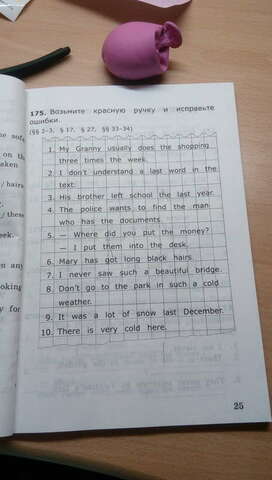 175. Возьмите красную ручку и исправьте
ошибки.
(§§ 2–3, § 17, § 27, §§ 33–34)
1. My Granny usually does the shopping
three times the week.
2. I don't understand a last word in the
text.
3. His brother left school the last year.
4. The police wants to find the man
who has the documents.
5. — Where did you put the money?
— I put them into the desk.
6. Mary has got long black hairs.
7. I never saw such a beautiful bridge.
8. Don't go to the park in such a cold
weather.
9. It was a lot of snow last December.
10. There is very cold here.
25
on the
hairs
these
week.
any